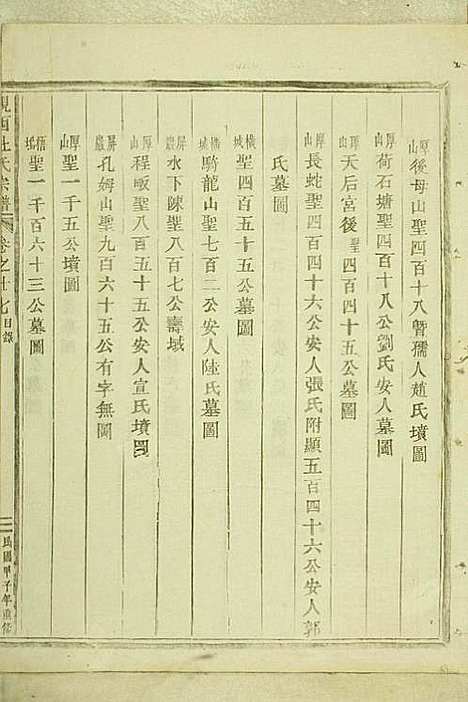 厚山後母山聖四百十八暨孺人趙氏墳圖
厚山荷石塘聖四百十八公劉氏安人墓圖
厚山天后宮後聖四百四十五公墓圖
厚山長蛇聖四百四十六公安人張氏附顯五百四十六公安人郭
氏墓圖
橫城聖四百五十五公墓圖
橫城騎龍山聖七百二公安人陸氏墓圖
屏巖水下陳聖八百七公壽域
厚山程畈聖八百五十五公安人宣氏墳圖
屏巖孔姆山聖九百六十五公有字無圖
厚山聖一千五公墳圖
梧聖一千百六十三公墓圖
峴西杜氏宗譜 卷之廿七 目錄 民國甲子年重修